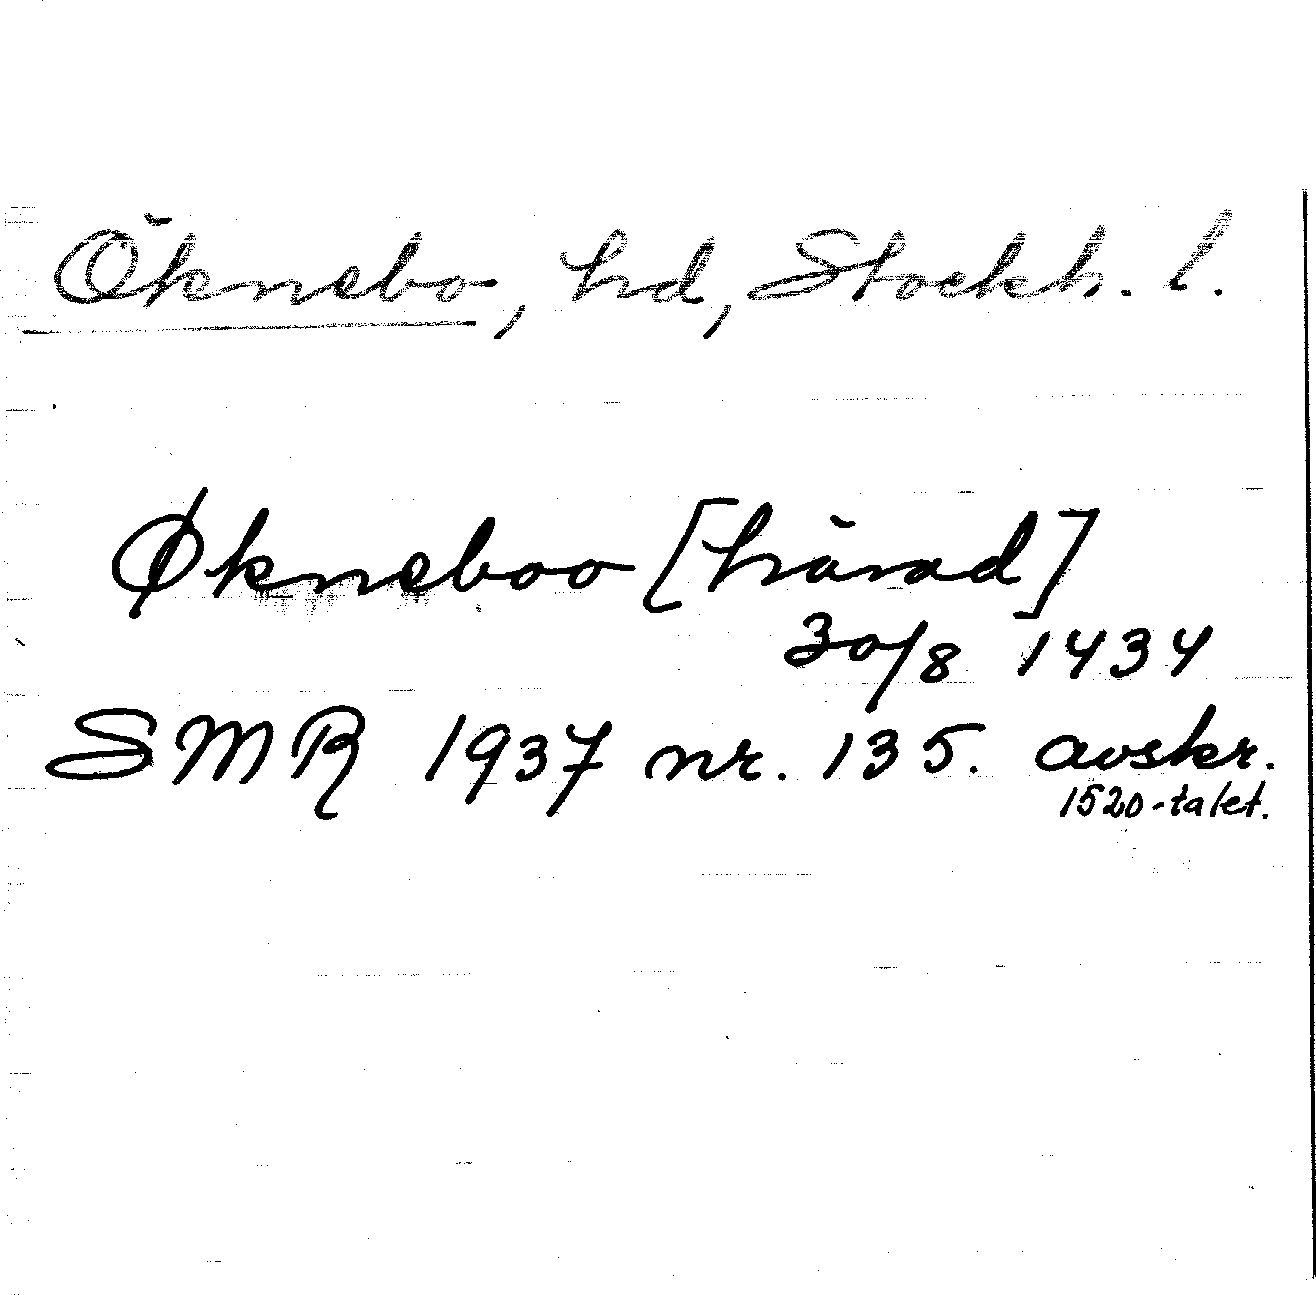 Öknebo, hd, Stockh. l.
Økneboo [härad]
30/8 1434
SMR 1937 nr. 135. avskr.
1520-talet.